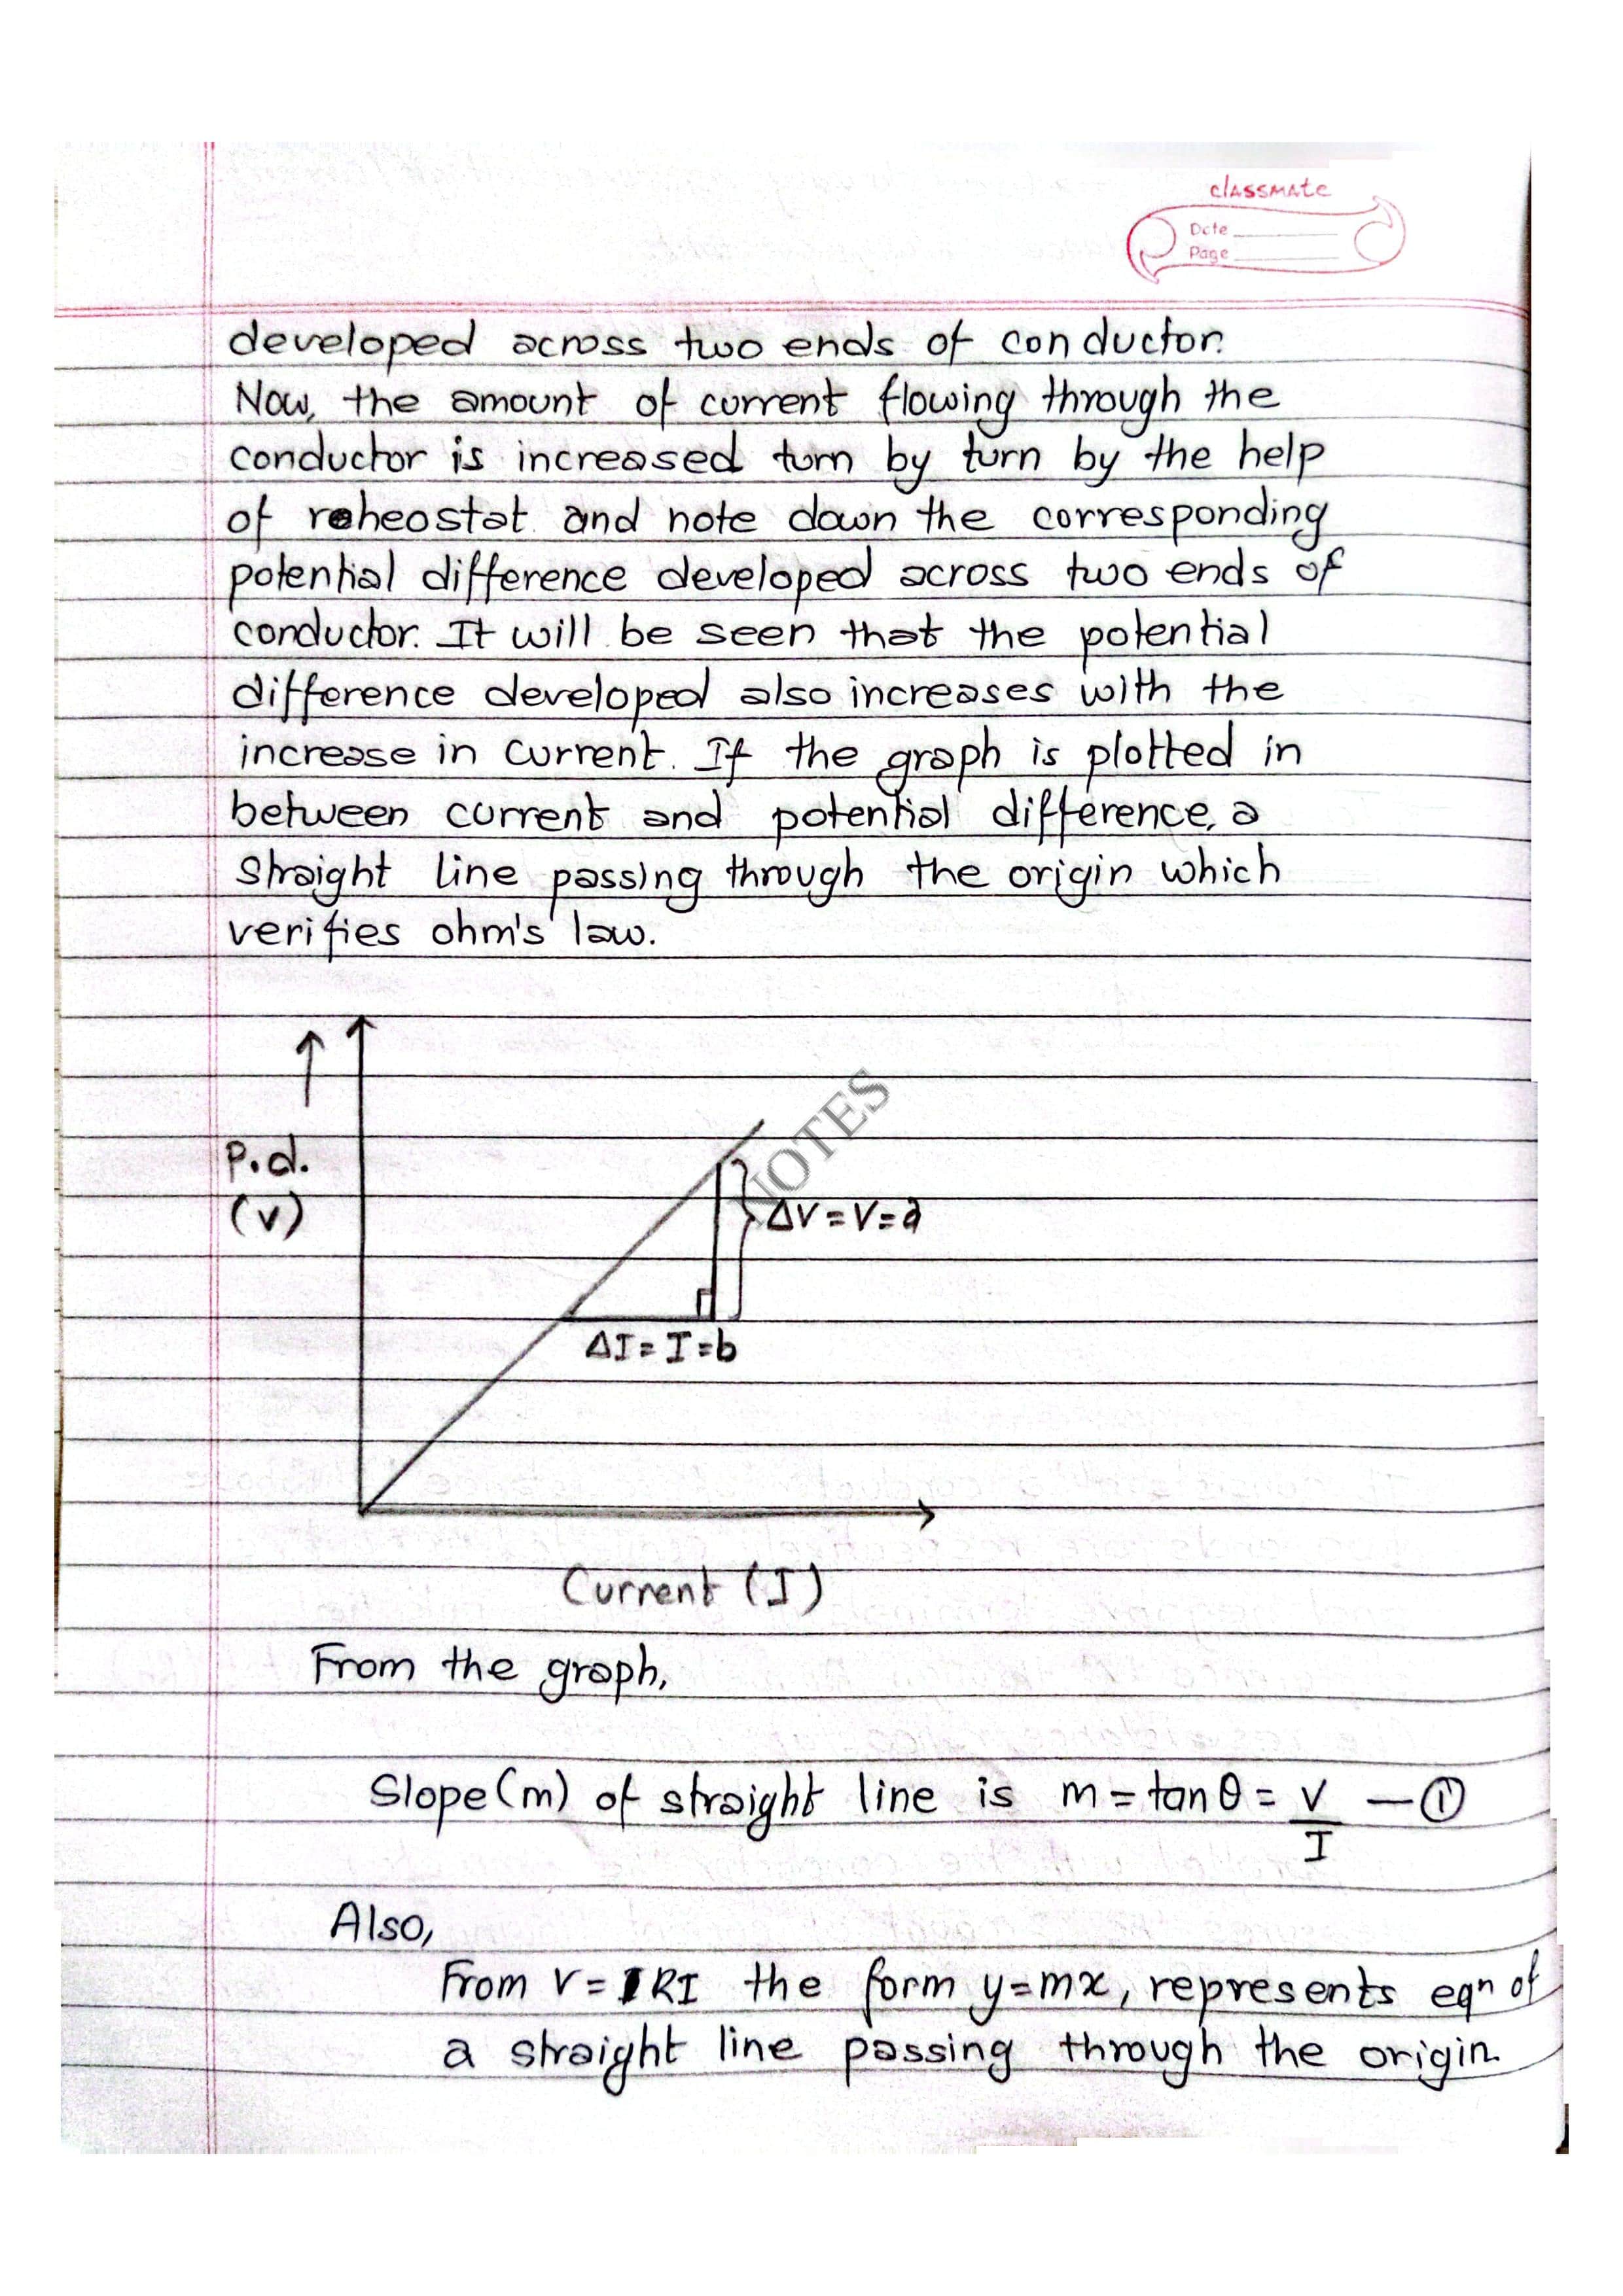 classmate
Date
Page
developed across two ends of conductor.
Now, the amount of current flowing through the
conductor is increased turn by turn by the help
of reheostat and note down the corresponding
potential difference developed across two ends of
conductor. It will be seen that the potential
difference developed also increases with the
increase in current. If the graph is plotted in
between current and potential difference, a
straight line passing through the origin which
verifies ohm's law.
P.d.
(V)
NOTES
ΔV = V = a
ΔI = I = b
Current (I)
From the graph,
Slope (m) of straight line is m = tan θ = V/I — ①
Also,
From V = RI the form y = mx, represents eqn of
a straight line passing through the origin.